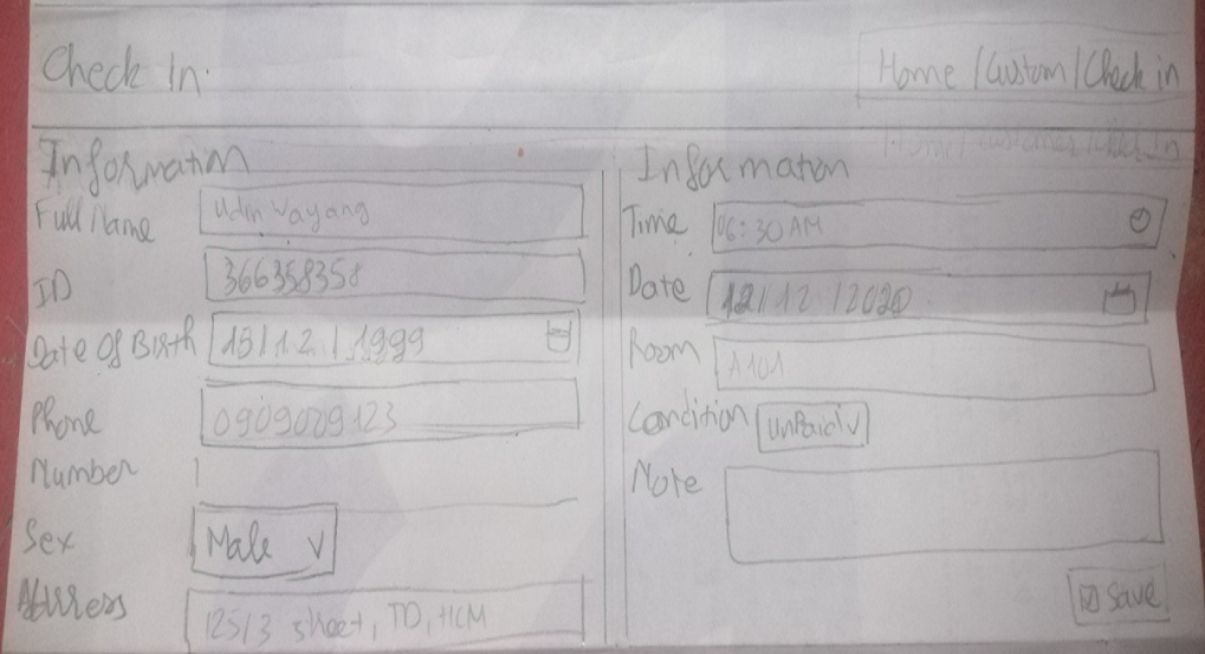 Check In
Home / Custom / Check in
Information
Full Name
Udin Wayang
ID
366358358
Date Of Birth
13/12/1999
Phone
Number
0909029123
Sex
Male
Address
125/3 street, TD, HCM
Information
Time
06:30 AM
Date
12/12/2020
Room
A101
Condition
UnPaid
Note
Save